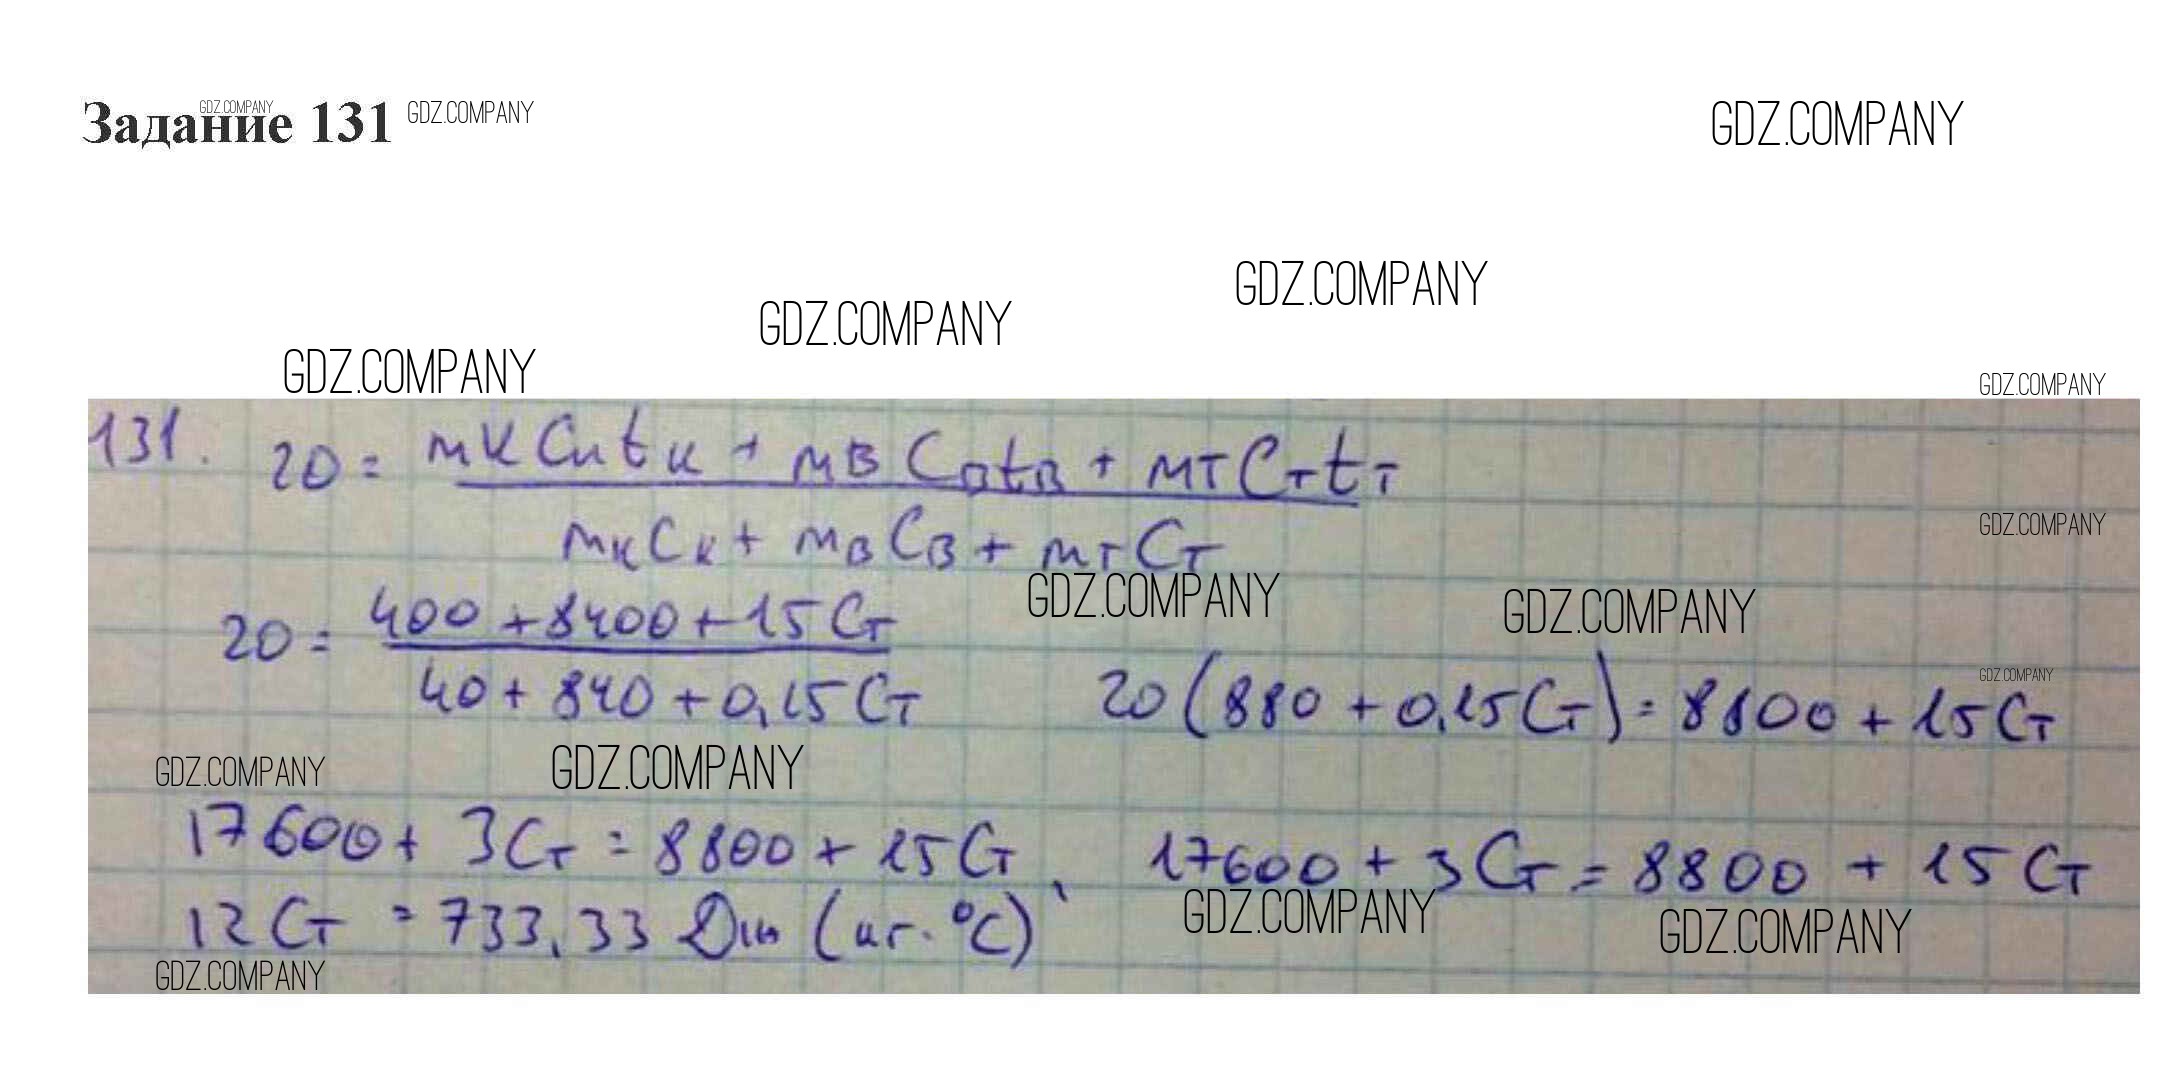 Задание 131 GDZ.COMPANY GDZ.COMPANY
GDZ.COMPANY
GDZ.COMPANY
GDZ.COMPANY
GDZ.COMPANY
GDZ.COMPANY
131. 20 = mк Cк tк + mв Cв tв + mт Cт tт
GDZ.COMPANY
mк Cк + mв Cв + mт Cт
GDZ.COMPANY GDZ.COMPANY
20 = 400 + 8400 + 15 Cт
40 + 840 + 0,15 Cт
20 (880 + 0,15 Cт) = 8800 + 15 Cт
GDZ.COMPANY
GDZ.COMPANY GDZ.COMPANY
17600 + 3 Cт = 8800 + 15 Cт , 17600 + 3 Cт = 8800 + 15 Cт
12 Cт = 733,33 Дж (кг · °C)
GDZ.COMPANY GDZ.COMPANY
GDZ.COMPANY